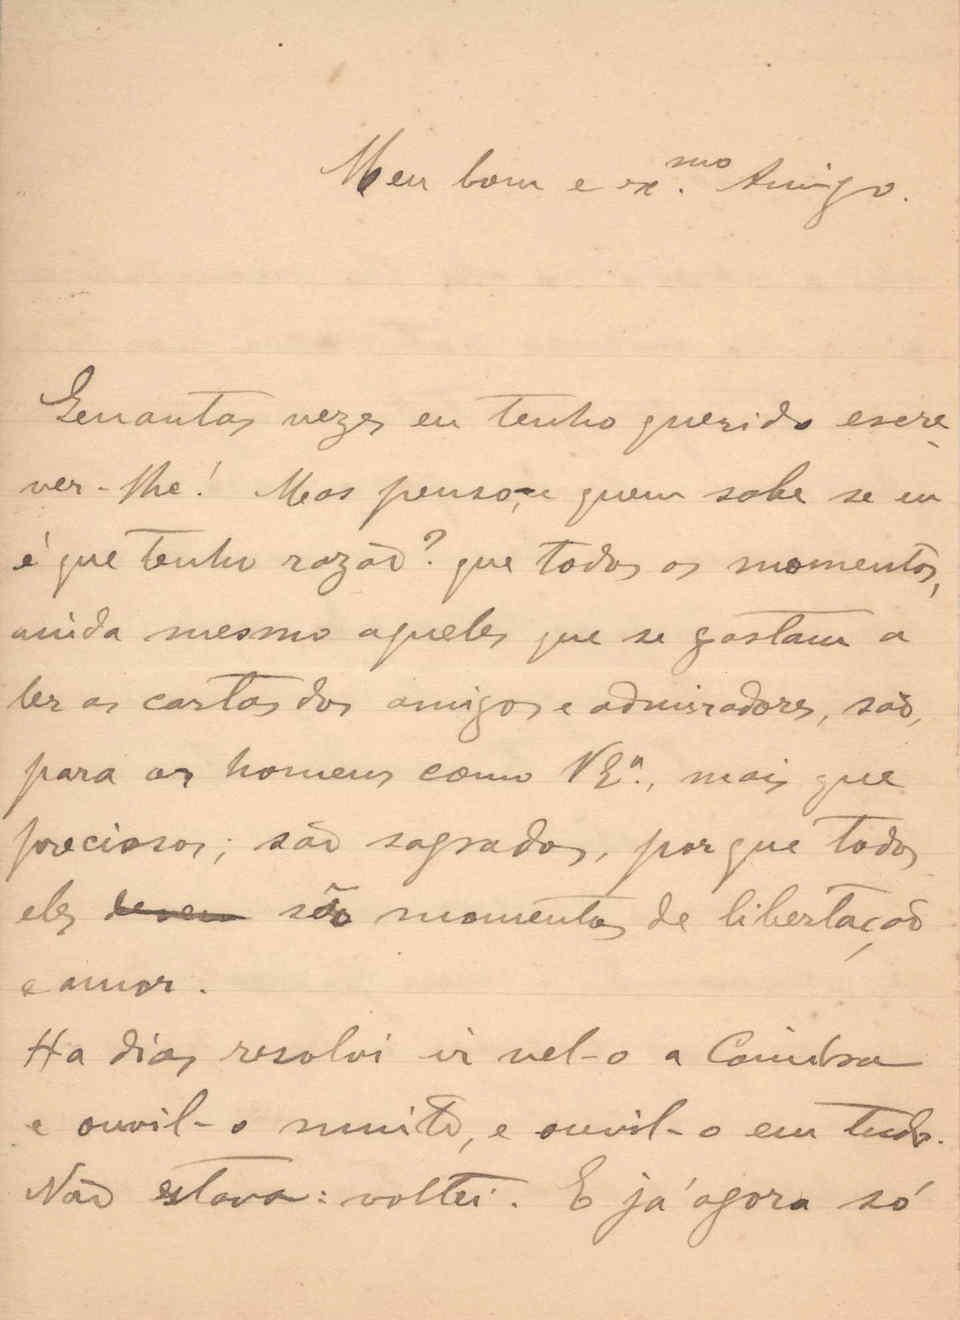 Meu bom e ex.mo Amigo.
Quantas vezes eu tenho querido escre-
ver-lhe! Mas penso, e quem sabe se eu
é que tenho razão? que todos os momentos,
ainda mesmo aqueles que se gastam a
ler as cartas dos amigos e admiradores, são,
para os homens como V Ex.ª, mais que
preciosos; são sagrados, porque todos
eles devem são momentos de libertação
e amor.
Ha dias resolvi ir vel-o a Coimbra
e ouvil-o muito, e ouvil-o em tudo.
Não estava: voltei. E já agora só